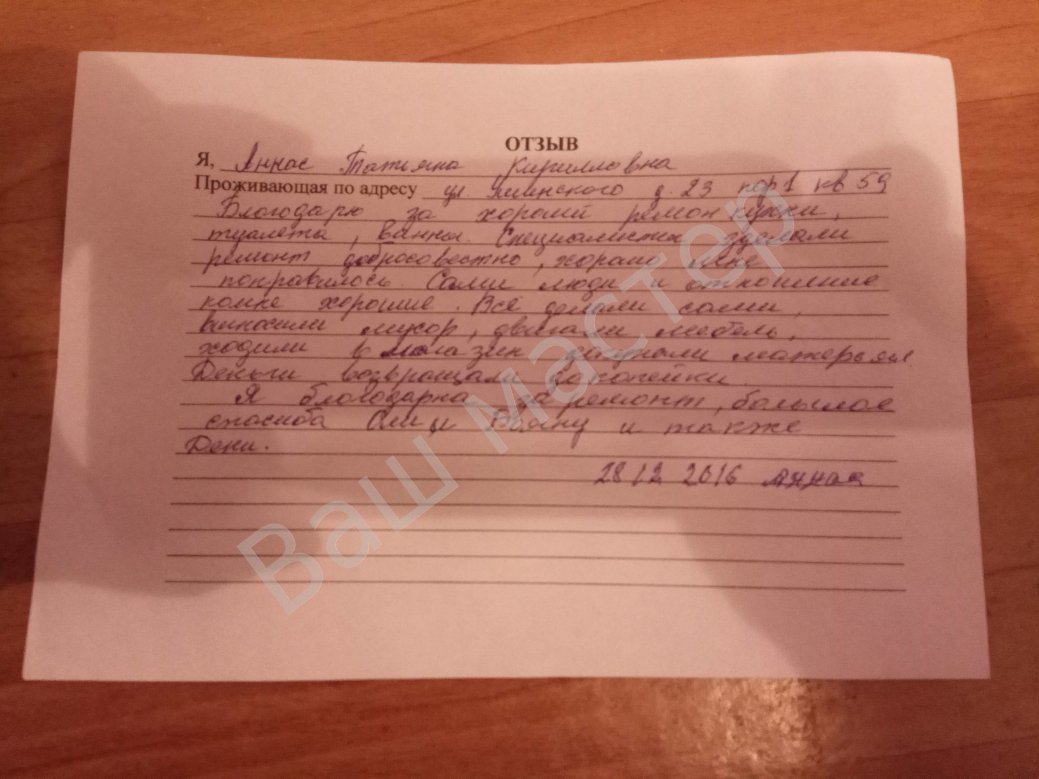 ОТЗЫВ
Я, Аннас Татьяна Кирилловна
Проживающая по адресу ул д. 23 кор 1 кв 59
Благодарю за хороший ремон кухни,
туалета, ванны. зделали
ремонт добросовестно, хорашо мене
понравилось. Сами люди и отношение
комне хорошие. Всё делали сами,
выносили мусор, двигали мебель,
ходили в магазин докупали матерьял
Деньги возвращали докопейки.
Я благодарна за ремонт, большое
спасиба и также
Дени.
28 12 2016 Аннас
Ваш Мастер